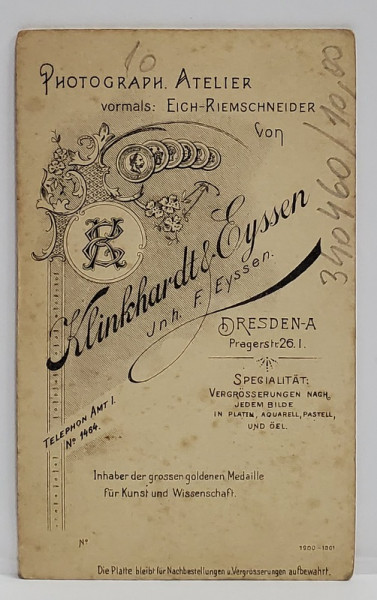 10
PHOTOGRAPH. ATELIER
vormals: EICH-RIEMSCHNEIDER
von
Klinkhardt & Eyssen
Inh. F. Eyssen.
DRESDEN-A
Pragerstr. 26. I.
SPECIALITÄT:
VERGRÖSSERUNGEN NACH
JEDEM BILDE
IN PLATIN, AQUARELL, PASTELL,
UND ÖEL.
TELEPHON AMT I.
No 1464.
Inhaber der grossen goldenen Medaille
für Kunst und Wissenschaft.
No
1900-1901
Die Platte bleibt für Nachbestellungen u. Vergrösserungen aufbewahrt.
340460/10,00